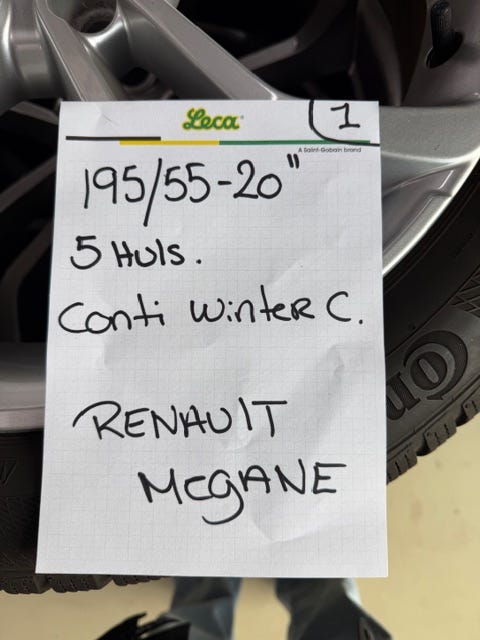 Leca
1
A Saint-Gobain brand
195/55-20"
5 Huls.
Conti Winter C.
RENAULT
MEGANE